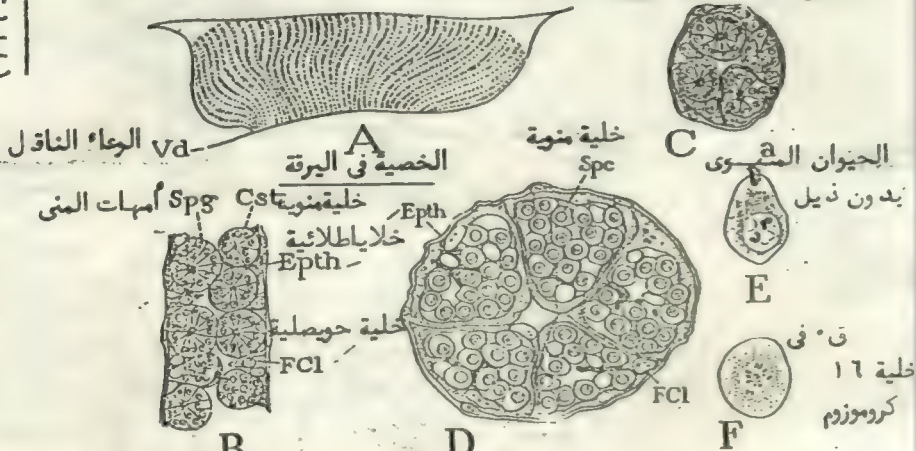 A
C
الوعاء الناقل Vd
الخصية في اليرقة
خلية منوية
Spc
الحيوان المنوى
a
بدون ذيل
E
أمهات المنى Spg
Cst خلية منوية
خلايا طلائية
Epth
Epth
خلية حويصلية
FCl
FCl
B
D
ق. فى
خلية ١٦
كروموزوم
F